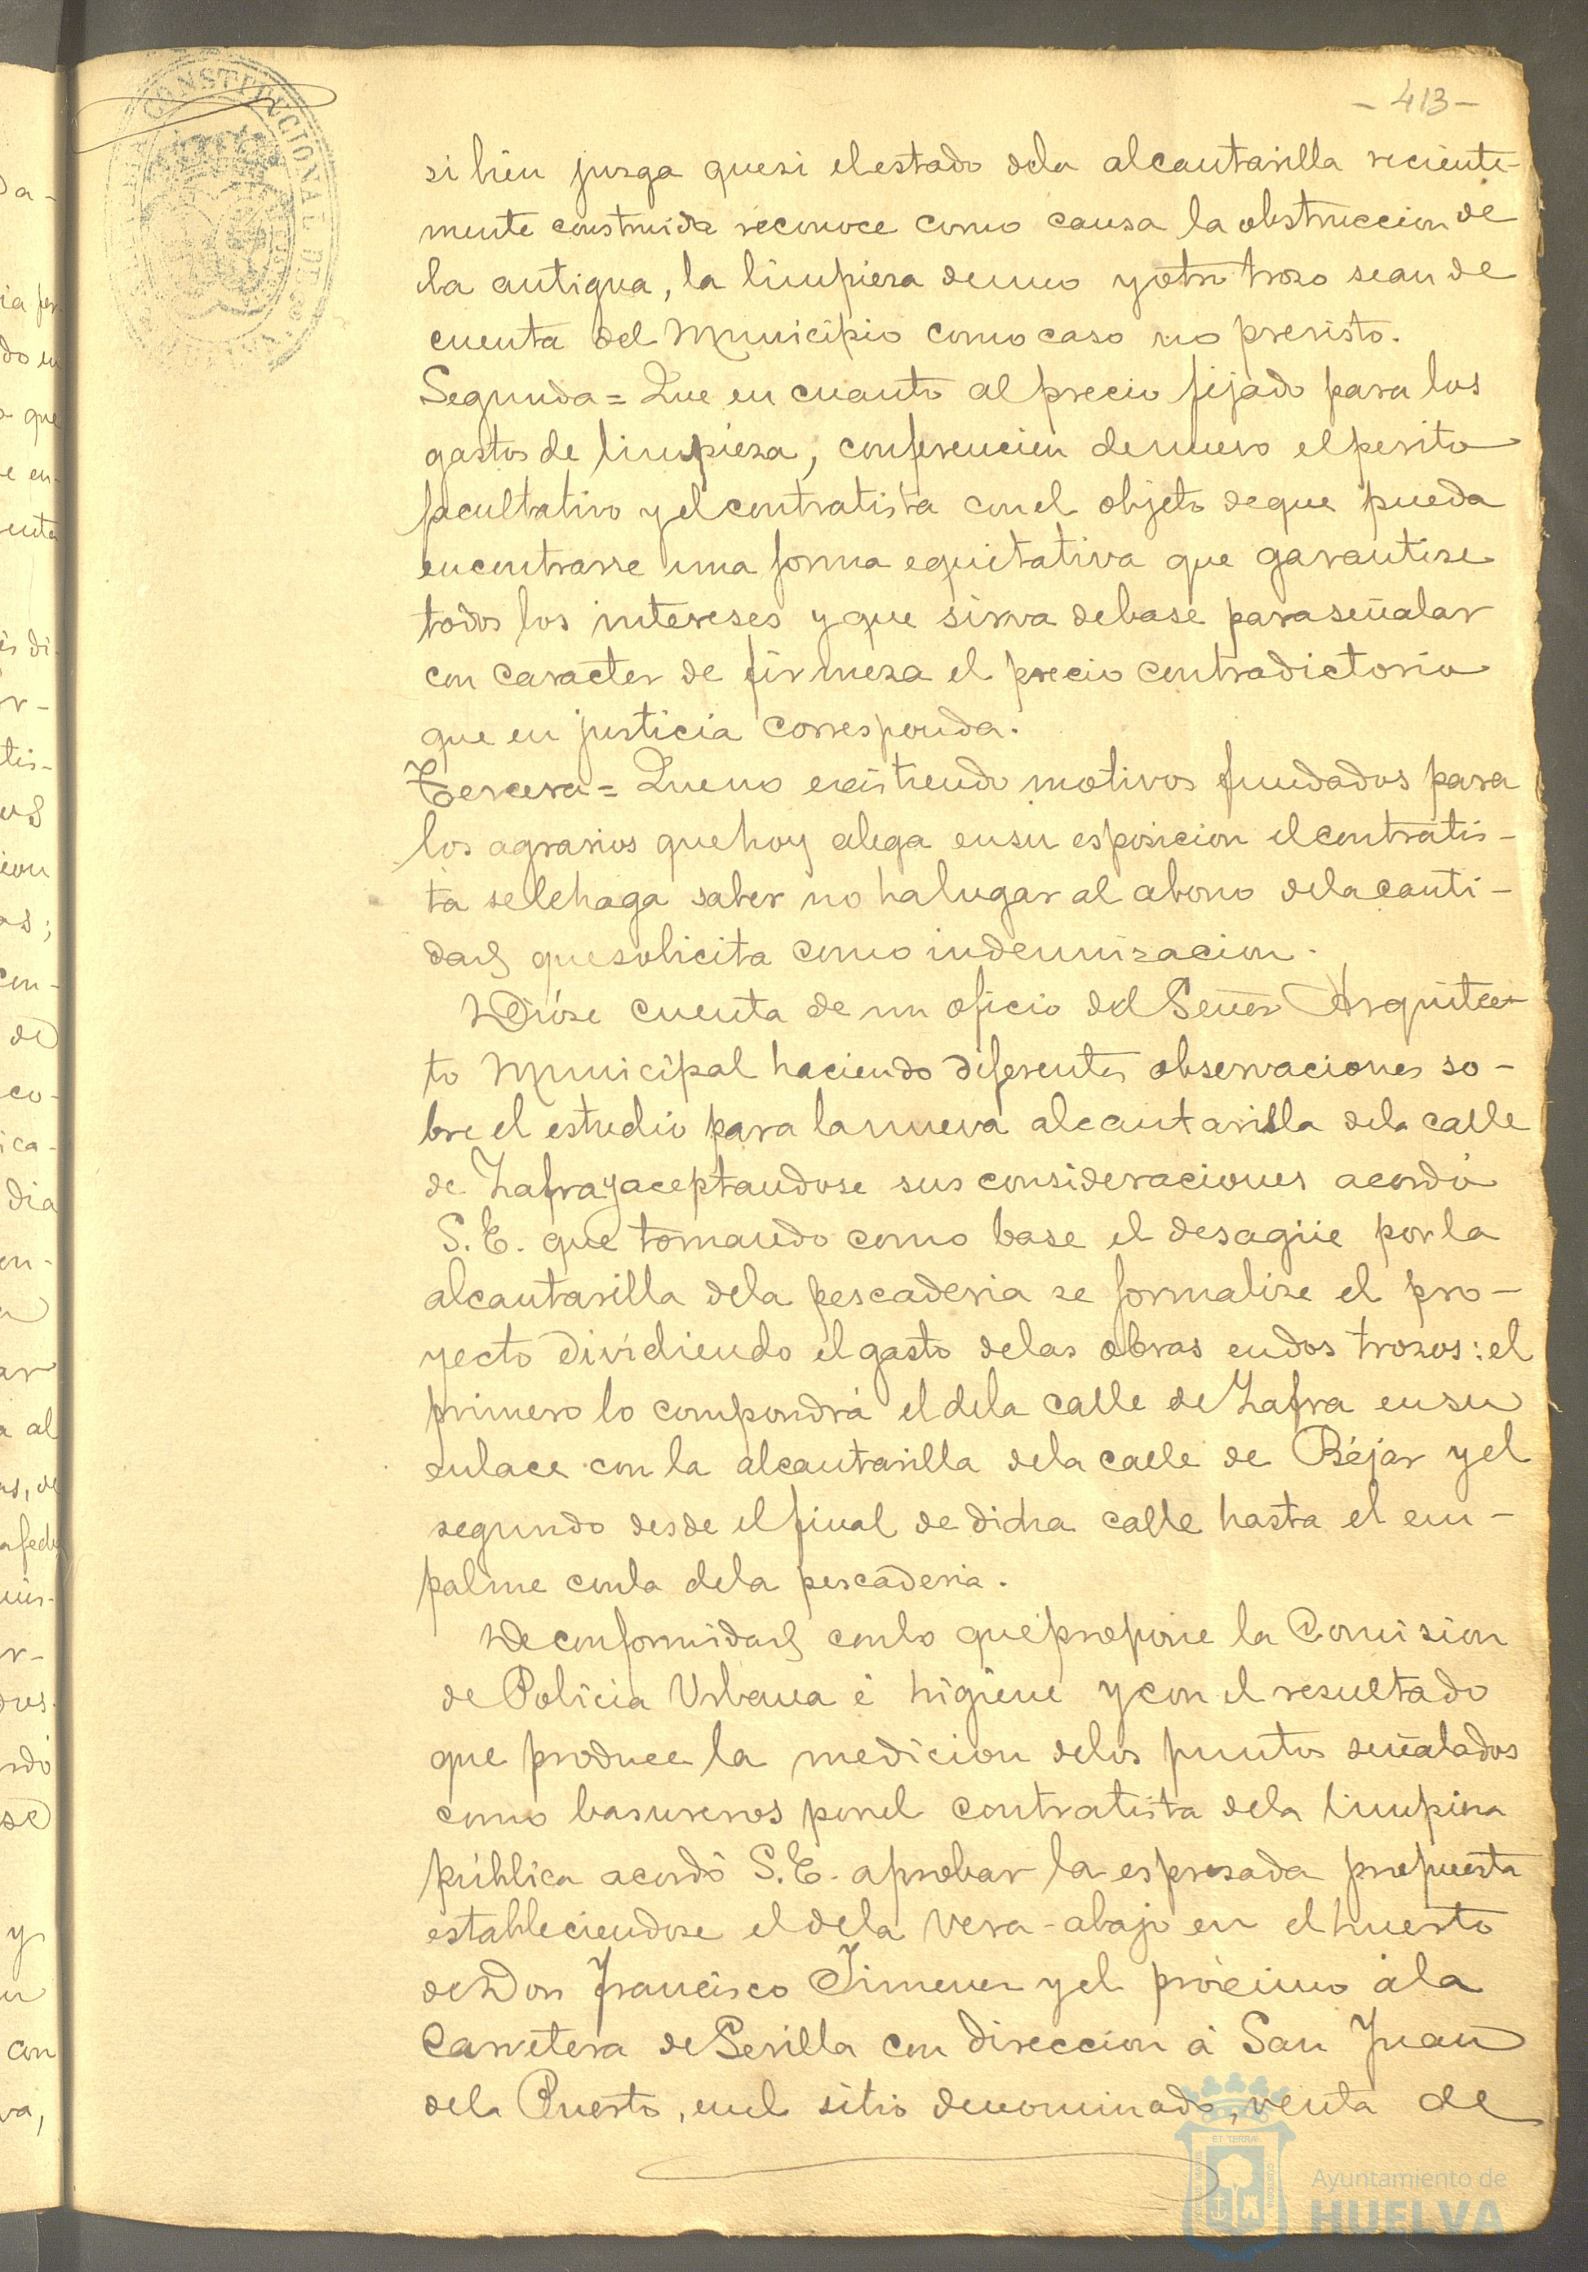 - 413 -
si bien juzga que si el estado de la alcantarilla reciente-
mente construida reconoce como causa la obstruccion de
la antigua, la limpieza de uno y otro trozo sean de
cuenta del Municipio como caso no previsto.
Segunda = Que en cuanto al precio fijado para los
gastos de limpieza, conferencien de nuevo el perito
facultativo y el contratista con el objeto de que pueda
encontrarse una forma equitativa que garantise
todos los intereses y que sirva de base para señalar
con caracter de firmeza el precio contradictorio
que en justicia corresponda.
Tercera = Que no existiendo motivos fundados para
los agravios que hoy alega en su esposicion el contratis-
ta se le haga saber no ha lugar al abono de la canti-
dad que solicita como indemnizacion.
Dióse cuenta de un oficio del Señor Arquitec-
to Municipal haciendo diferentes observaciones so-
bre el estudio para la nueva alcantarilla de la calle
de Zafra y aceptandose sus consideraciones acordó
S.E. que tomando como base el desagüe por la
alcantarilla de la pescaderia se formalise el pro-
yecto dividiendo el gasto de las obras en dos trozos: el
primero lo compondrá el de la calle de Zafra en su
enlace con la alcantarilla de la calle de Béjar y el
segundo desde el final de dicha calle hasta el em-
palme con la de la pescaderia.
De conformidad con lo que propone la Comision
de Policia Urbana é higiene y con el resultado
que produce la medicion de los puntos señalados
como basureros por el contratista de la limpieza
pública acordó S.E. aprobar la espresada propuesta
estableciendose el de la Vera-abajo en el huerto
de Don Francisco Jimenez y el próximo á la
Carretera de Sevilla con direccion á San Juan
del Puerto, en el sitio denominado, venta de
CONSTITUCIONAL DE
Ayuntamiento de
HUELVA